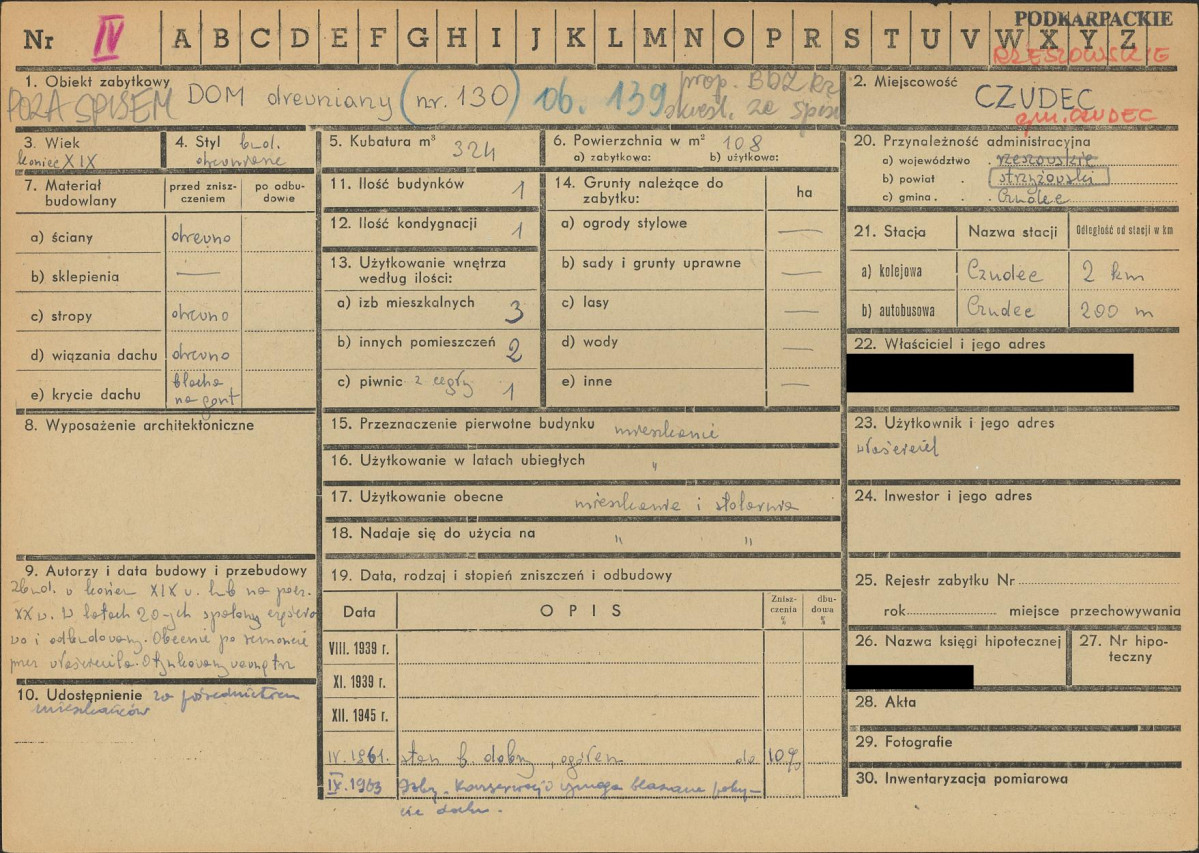 Nr IV A B C D E F G H I J K L M N O P R S T U V W X Y Z
PODKARPACKIE
RZESZOWSKIE
1. Obiekt zabytkowy
POZA SPISEM DOM drewniany (nr. 130) 06. 139 prop. BDZ Rz
skreśl. ze spisu
2. Miejscowość
CZUDEC
gm. CZUDEC
3. Wiek
koniec XIX
4. Styl bud.
drewniane
5. Kubatura m³ 324
6. Powierzchnia w m² 108
a) zabytkowa: b) użytkowa:
20. Przynależność administracyjna
a) województwo rzeszowskie
b) powiat strzyżowski
c) gmina Czudec
7. Materiał budowlany
przed znisz-
czeniem
po odbu-
dowie
a) ściany drewno
b) sklepienia —
c) stropy drewno
d) wiązania dachu drewno
e) krycie dachu blacha
na gont
11. Ilość budynków 1
12. Ilość kondygnacji 1
13. Użytkowanie wnętrza
według ilości:
a) izb mieszkalnych 3
b) innych pomieszczeń 2
c) piwnic z cegły 1
14. Grunty należące do
zabytku:
ha
a) ogrody stylowe —
b) sady i grunty uprawne —
c) lasy —
d) wody —
e) inne —
21. Stacja Nazwa stacji Odległość od stacji w km
a) kolejowa Czudec 2 km
b) autobusowa Czudec 200 m
22. Właściciel i jego adres
8. Wyposażenie architektoniczne
15. Przeznaczenie pierwotne budynku mieszkanie
16. Użytkowanie w latach ubiegłych "
17. Użytkowanie obecne mieszkanie i stolarnia
18. Nadaje się do użycia na " "
23. Użytkownik i jego adres
właściciel
24. Inwestor i jego adres
9. Autorzy i data budowy i przebudowy
Zbud. w końcu XIX w. lub na pocz.
XX w. W latach 20-ych spalony częścio
wo i odbudowany. Obecnie po remoncie
przez właściciela. Otynkowany wewnątrz
10. Udostępnienie za pośrednictwem
mieszkańców
19. Data, rodzaj i stopień zniszczeń i odbudowy
Data OPIS Znisz-
czenia
% dbu-
dowa
%
VIII. 1939 r.
XI. 1939 r.
XII. 1945 r.
IV. 1961. stan b. dobry, ogółem do 10%
IX. 1963 Dobry. Konserwacji wymaga blaszane pokry-
cie dachu.
25. Rejestr zabytku Nr
rok miejsce przechowywania
26. Nazwa księgi hipotecznej
27. Nr hipo-
teczny
28. Akta
29. Fotografie
30. Inwentaryzacja pomiarowa